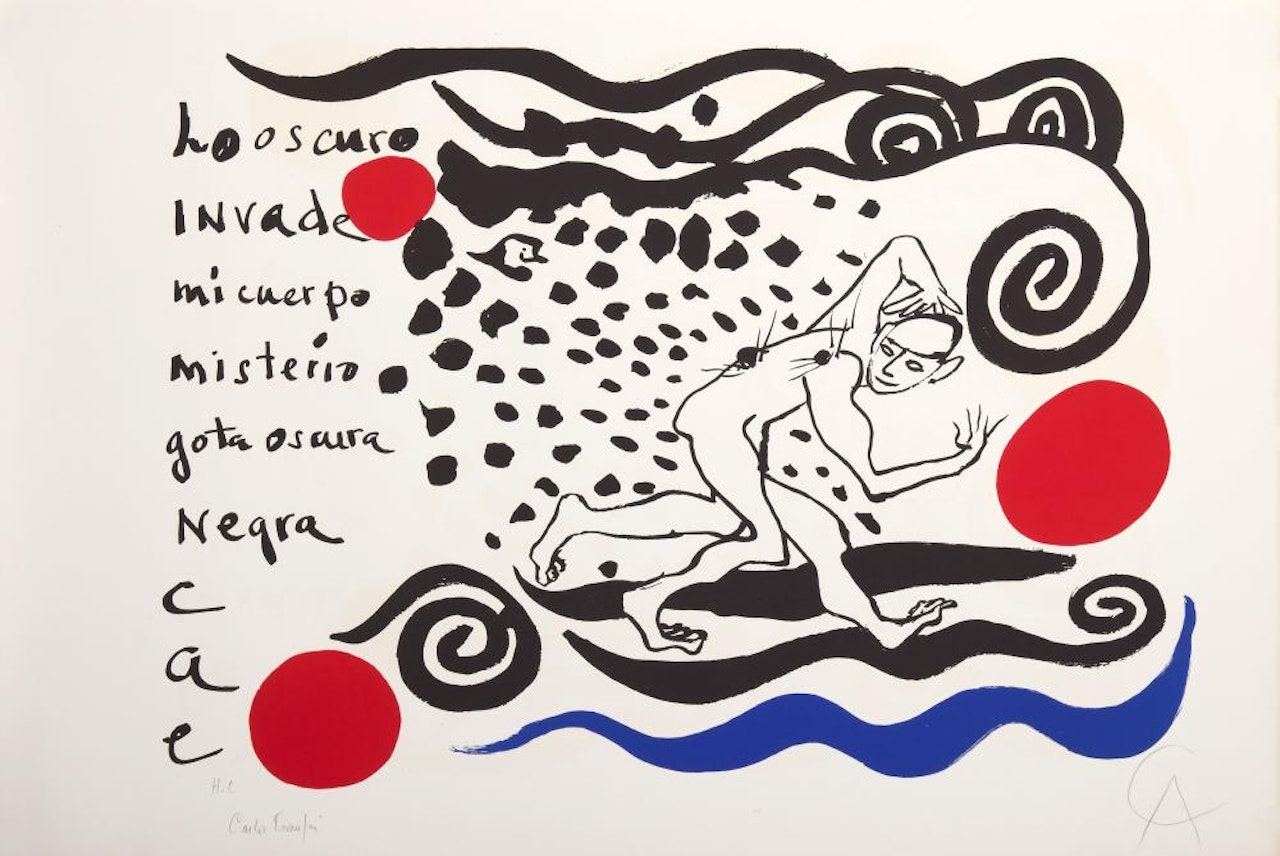 Lo oscuro
INVade
mi cuerpo
misterio
gota oscura
Negra
c
a
e
H.C
Carlos Franqui
CA